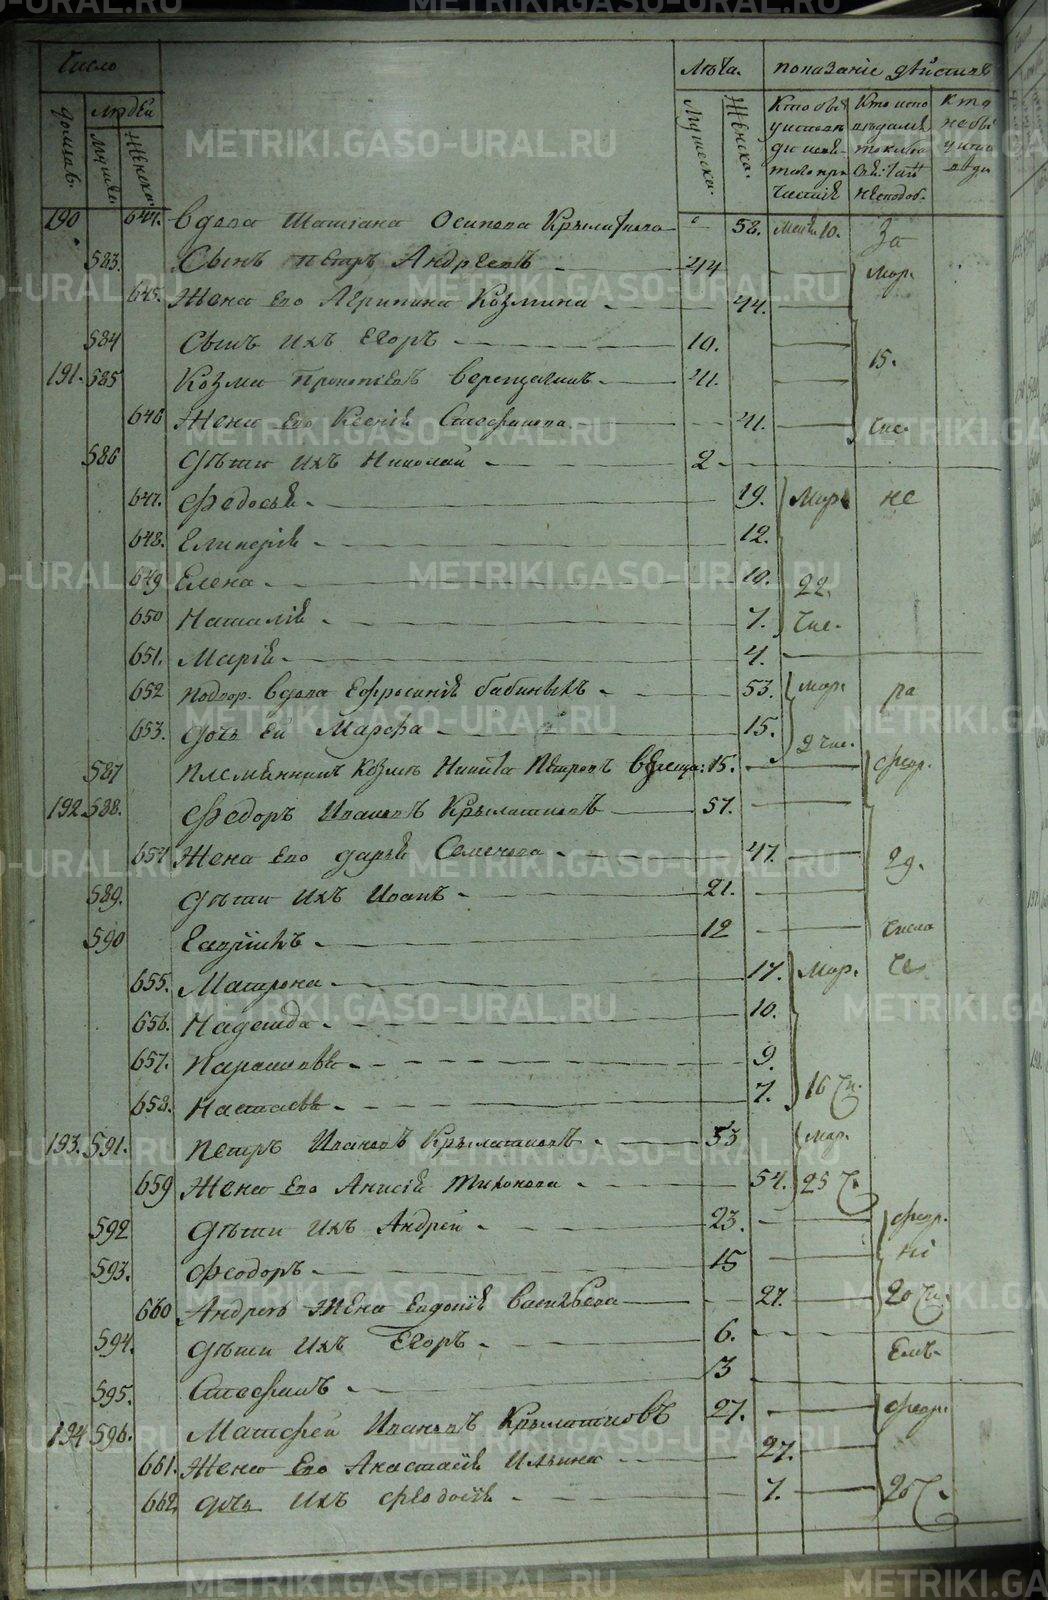 Число Лѣта. показаніе дѣйствъ
домовъ. людей Мужеска. Женска. Кто бы Кто испо Кто
190 644. вдова Осипова Крылаткова 58. 10. За
583. Сынъ Петръ Андреевъ 44 Мар.
645. Жена Его Агрипина Козмина 44.
584 Сынъ ихъ Егоръ 10. 15.
191. 585 Козма Прокопьевъ Верещагинъ 41.
646 Жена Его Ксенія Стефанова 41. Чис.
586 Дѣти ихъ Николай 2
647. Федосья 19. Мар. не
648. 12.
649 Елена 10. 22.
650 Наталія 7. Чис.
651. Марія 4.
652 вдова Ефросинія Бабиныхъ 53. Мар. ра
653. дочь Ея Марфа 15. 2 чис.
587 Племянникъ Козмы Никита Петровъ Вереща: 15. февр.
192 588. Федоръ Ивановъ Крылатковъ 57.
654 Жена Его Дарья Семенова 47. 29.
589. Дѣти ихъ Иванъ 21.
590 Гаврилъ 12 числа
655. Матрена 17. Мар.
656. Надежда 10.
657. Парасковья 9.
658. Настасья 7. 16 Чи.
193. 591. Петръ Ивановъ Крылатковъ 53 Мар.
659 Жена Его Анисія Тихонова 54. 25 Ч.
592 Дѣти ихъ Андрей 23. февр.
593. Феодоръ 15
660 Андрея Жена Евдокія Васильева 27. 20 Чи.
594. Дѣти ихъ Егоръ 6.
595. Стефанъ 3
194 596. Матфей Ивановъ Крылатковъ 27. февр.
661. Жена Его Анастасія Ильина 27.
662. дочь ихъ Феодосія 7. 20 Ч.
METRIKI.GASO-URAL.RU